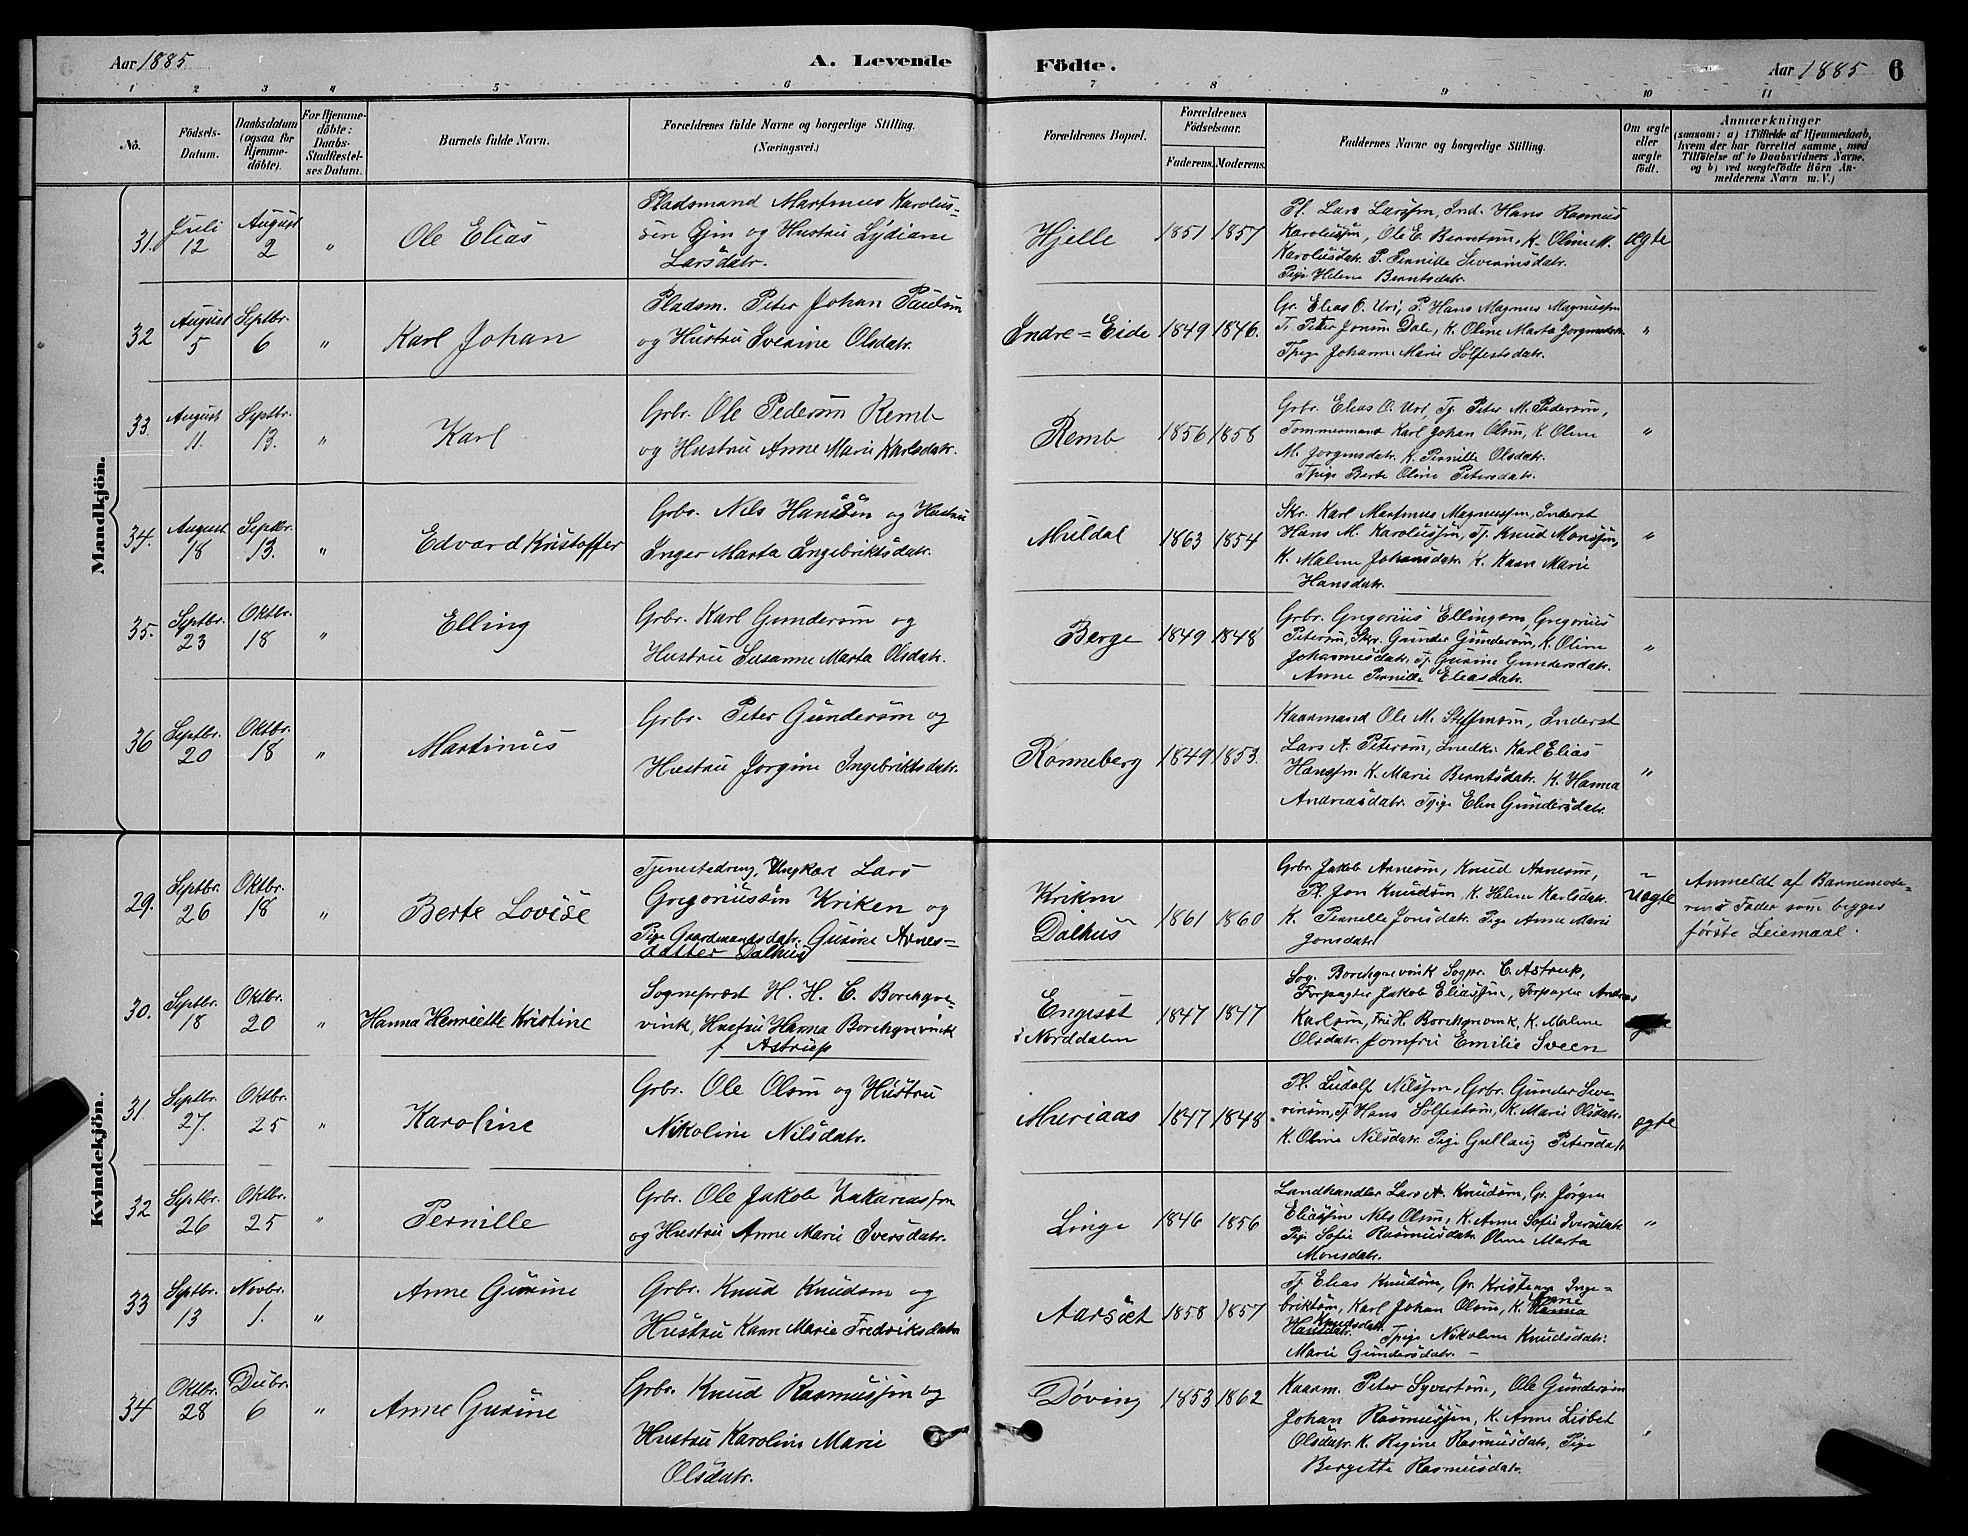 Aar 1885
A. Levende
Födte.
Aar 1885
6
1 2 3 4 5 6 7 8 9 10 11
No.
Födsels-
Datum.
Daabsdatum
(ogsaa for
Hjemme-
döbte).
For Hjemme-
döbte:
Daabs-
Stadfæstel-
ses Datum.
Barnets fulde Navn.
Forældrenes fulde Navne og borgerlige Stilling.
(Næringsvei.)
Forældrenes Bopæl.
Forældrenes
Födselsaar.
Faderens.
Moderens.
Faddernes Navne og borgerlige Stilling.
Om ægte
eller
uægte
födt.
Anmærkninger
(saasom: a) i Tilfælde af Hjemmedaab,
hvem der har forrettet samme, med
Tilföielse af to Daabsvidners Navne.
og b) ved uægtefödte Börn An-
melderens Navn m. V.)
Mandkjön.
31. Juli 12 August 2 " Ole Elias
Pladsmand Martinus Karolus-
sen Gjin og Hustru Lydiane
Larsdatr.
Hjelle 1851 1857
Pl. Lars Larssen, Ind. Hans Rasmus
Karolussen, Ole E. Berntsen, K. Oline M.
Karolusdatr. P. Pernille Severinsdatr.
Pige Helene Berntsdatr.
ægte
32 August 5 Septbr. 6 " Karl Johan
Pladsm. Peter Johan Paulsen
og Hustru Severine Olsdatr.
Indre=Eide 1849 1846.
Gr. Elias O. Uri, P. Hans Magnus Magnussen
Tj. Peter Jonsen Dale, K. Oline Marta Jorgensdatr.
Tpige Johanne Marie Sølfestsdatr.
"
33. August 11. Septbr. 13. " Karl
Grbr. Ole Pedersen Remb
og Hustru Anne Marie Karlsdatr.
Remb 1856 1858
Grbr. Elias O. Uri, Tj. Peter M. Pedersen,
Tommermand Karl Johan Olsen, K. Oline
M. Jorgensdatr. K. Pernille Olsdatr.
Tpige Berte Oline Petersdatr.
"
34. August 18 Septbr. 13. " Edvard Kristoffer
Grbr. Nils Hanssen og Hustru
Inger Marta Ingebriktsdatr.
Muldal 1863 1854
Skr. Karl Martinus Magnussen, Inderst
Hans M. Karolussen, Tj. Knud Monssen,
K. Malene Johansdatr. K. Karn Marie
Hansdatr.
"
35. Septbr. 23 Oktbr. 18 " Elling
Grbr. Karl Gundersen og
Hustru Susanne Marta Olsdatr.
Berge 1849 1848
Grbr. Gregorius Ellingsen, Gregorius
Petersen, Skr. Gunder Gundersen, K. Oline
Johannesdatr. Tj. Gurine Gundersdatr.
Anne Pernille Eliasdatr.
"
36 Septbr. 20 Oktbr. 18 " Martinus
Grbr. Peter Gundersen og
Hustru Jorgine Ingebriktsdatr.
Ronneberg 1849 1853.
Kaarmand Ole M. Steffensen, Inderst
Lars A. Petersen, Snedkr. Karl Elias
Hanssen K. Marie Berntsdatr. K. Hanna
Andreasdatr. Tpige Elen Gundersdatr.
"
Kvindekjön.
29. Septbr. 26 Oktbr. 18 " Berte Lovise
Tjenestedreng, Ungkarl Lars
Gregoriussen Kriken og
Pige Gaardmandsdatr. Gurine Arnes-
datter Dalhus
Kriken
Dalhus 1861 1860
Grbr. Jakob Arnesen, Knud Arnesen,
Pl. Jon Knudsen, K. Helene Karlsdatr.
K. Pernille Jonsdatr. Pige Anne Marie
Jonsdatr
uægte
Anmeldt af Barnemode-
rens Fader som begges
første Leiemaal.
30. Septbr. 18 Oktbr. 20 " Hanna Henriette Kristine
Sogneprest H. H. C. Borchgre-
vink, Hustru Hanna Borchgrevink
f Astrup
Engeset
i Norddalen 1847 1847
Sog. Borchgrevink Sogpr. C. Astrup,
Forpagter Jakob Eliassen, Forpagter Andreas
Karlsen, Fru H. Borchgrevink, K. Malene
Olsdatr. Jomfru Emilie Sveen
ægte
31. Septbr. 27. Oktbr. 25 " Karoline
Grbr. Ole Olsen og Hustru
Nikoline Nilsdatr.
Muriaas 1847 1848
Pl. Ludolf Nilssen, Grbr. Gunder Seve-
rinsen, Tj. Hans Sølfestsen, K. Marie Olsdatr.
K. Oline Nilsdatr. Pige Gullaug Petersdatr
ægte
32 Septbr. 26 Oktbr. 25 " Pernille
Grbr. Ole Jakob Zakariassen
og Hustru Anne Marie Iversdatr.
Linge 1846 1856
Landhandler Lars A. Knudsen, Gr. Jørgen
Eliassen Nils Olsen, K. Anne Sofie Iversdatr.
Pige Sofie Rasmusdatr. Oline Marta
Monsdatr.
"
33 Septbr. 13 Novbr. 1. " Anne Gurine
Grbr. Knud Knudsen og
Hustru Karn Marie Fredriksdatr
Aarset 1858 1857
Tj. Elias Knudsen, Gr. Kristen Inge-
briktsen, Karl Johan Olsen, K. Anne
Knudsdatr. Tpige Nikoline Knudsdatr.
Marie Gundersdatr. -
34 Oktbr. 28 Decbr. 6 " Anne Gurine
Grbr. Knud Rasmussen og
Hustru Karoline Marie
Olsdatr.
Døving 1853 1862
Kaarm. Peter Syvertsen, Ole Gundersen
Johan Rasmussen, K. Anne Lisbet
Olsdatr. K. Regine Rasmusdatr. Pige
Bergette Rasmusdatr.
"